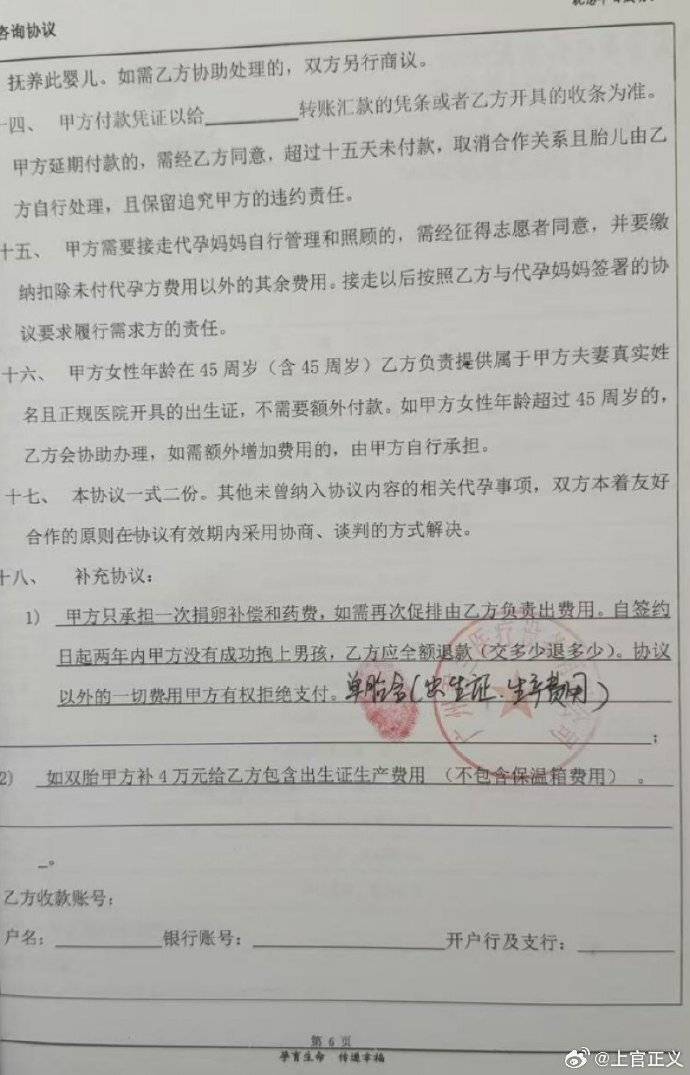 咨询协议
抚养此婴儿。如需乙方协助处理的，双方另行商议。
十四、 甲方付款凭证以给________转账汇款的凭条或者乙方开具的收条为准。
甲方延期付款的，需经乙方同意，超过十五天未付款，取消合作关系且胎儿由乙
方自行处理，且保留追究甲方的违约责任。
十五、 甲方需要接走代孕妈妈自行管理和照顾的，需经征得志愿者同意，并要缴
纳扣除未付代孕方费用以外的其余费用。接走以后按照乙方与代孕妈妈签署的协
议要求履行需求方的责任。
十六、 甲方女性年龄在 45 周岁（含 45 周岁）乙方负责提供属于甲方夫妻真实姓
名且正规医院开具的出生证，不需要额外付款。如甲方女性年龄超过 45 周岁的，
乙方会协助办理，如需额外增加费用的，由甲方自行承担。
十七、 本协议一式二份。其他未曾纳入协议内容的相关代孕事项，双方本着友好
合作的原则在协议有效期内采用协商、谈判的方式解决。
十八、 补充协议：
1) 甲方只承担一次捐卵补偿和药费，如需再次促排由乙方负责出费用。自签约
日起两年内甲方没有成功抱上男孩，乙方应全额退款（交多少退多少）。协议
以外的一切费用甲方有权拒绝支付。单胎含（出生证、生产费用）
；
2) 如双胎甲方补 4 万元给乙方包含出生证生产费用 （不包含保温箱费用） 。
_。
乙方收款账号：
户名：________银行账号：______________开户行及支行：________
第 6 页
孕育生命 传递幸福
@上官正义